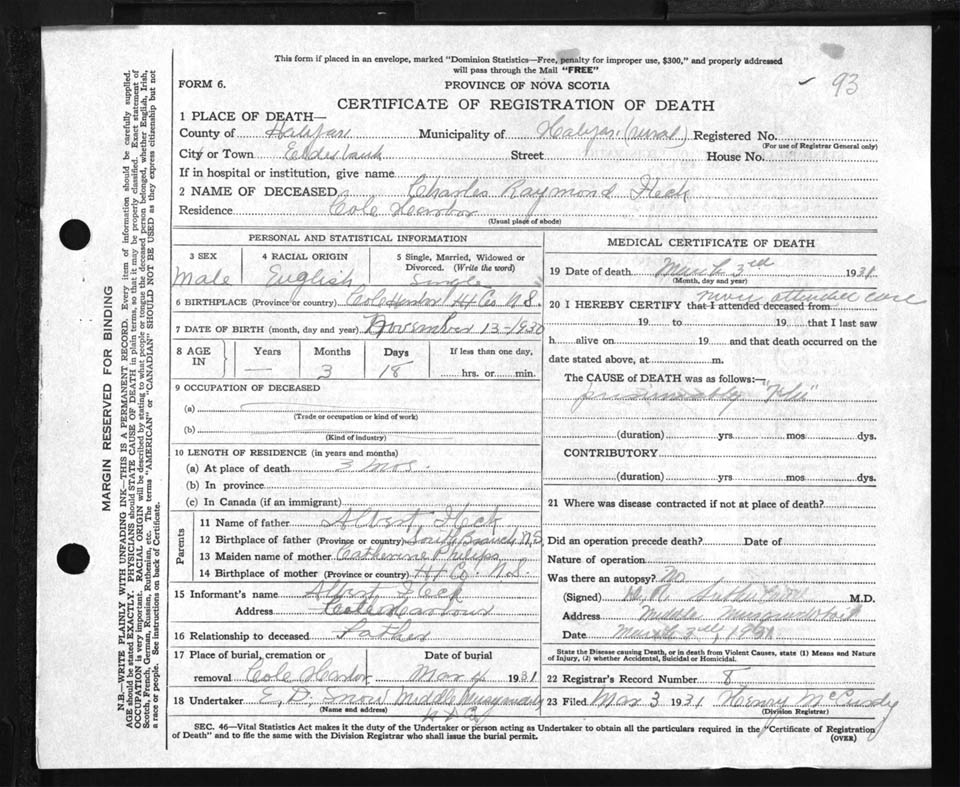 This form if placed in an envelope, marked "Dominion Statistics—Free, penalty for improper use, $300," and properly addressed
will pass through the Mail "FREE"
93
FORM 6.
PROVINCE OF NOVA SCOTIA
CERTIFICATE OF REGISTRATION OF DEATH
1 PLACE OF DEATH—
County of Halifax Municipality of Halifax (rural) Registered No.
(For use of Registrar General only)
City or Town Street House No.
If in hospital or institution, give name
2 NAME OF DECEASED Charles Raymond Fleck
Residence Cole Harbor
(Usual place of abode)
PERSONAL AND STATISTICAL INFORMATION
3 SEX 4 RACIAL ORIGIN 5 Single, Married, Widowed or Divorced. (Write the word)
Male English Single
6 BIRTHPLACE (Province or country) Cole Harbor Hx Co N.S.
7 DATE OF BIRTH (month, day and year) November 13-1930
8 AGE IN Years Months Days If less than one day,
— 3 18 hrs. or min.
9 OCCUPATION OF DECEASED
(a)
(Trade or occupation or kind of work)
(b)
(Kind of industry)
10 LENGTH OF RESIDENCE (in years and months)
(a) At place of death 3 mos.
(b) In province
(c) In Canada (if an immigrant)
Parents
11 Name of father Albert Fleck
12 Birthplace of father (Province or country) South Branch N.S.
13 Maiden name of mother Catherine Philips
14 Birthplace of mother (Province or country) Hx Co. N.S.
15 Informant's name Albert Fleck
Address Cole Harbour
16 Relationship to deceased Father
17 Place of burial, cremation or removal Date of burial
Cole Harbor Mar 4 1931
18 Undertaker E. D. Snow Middle
(Name and address)
MEDICAL CERTIFICATE OF DEATH
19 Date of death March 3rd 1931
(Month, day and year)
20 I HEREBY CERTIFY that I attended deceased from never attended case
19 to 19 that I last saw
h alive on 19 and that death occurred on the
date stated above, at m.
The CAUSE of DEATH was as follows:—
presumably "Flu"
(duration) yrs mos dys.
CONTRIBUTORY
(duration) yrs mos dys.
21 Where was disease contracted if not at place of death?
Did an operation precede death? Date of
Nature of operation
Was there an autopsy? No
(Signed) M.D.
Address Middle Musquodoboit
Date March 3rd, 1931
State the Disease causing Death, or in death from Violent Causes, state (1) Means and Nature of Injury, (2) whether Accidental, Suicidal or Homicidal.
22 Registrar's Record Number 8
23 Filed Mar 3 1931 Henry McCurdy
(Division Registrar)
SEC. 46—Vital Statistics Act makes it the duty of the Undertaker or person acting as Undertaker to obtain all the particulars required in the "Certificate of Registration
of Death" and to file the same with the Division Registrar who shall issue the burial permit.
(OVER)
MARGIN RESERVED FOR BINDING
N.B.—WRITE PLAINLY WITH UNFADING INK—THIS IS A PERMANENT RECORD. Every item of information should be carefully supplied.
AGE should be stated EXACTLY. PHYSICIANS should STATE CAUSE OF DEATH in plain terms, so that it may be properly classified. Exact statement of
OCCUPATION is very important. RACIAL ORIGIN will be described by stating to what people or tongue the deceased person belonged, whether English, Irish,
Scotch, French, German, Russian, Ruthenian, etc. The terms "AMERICAN" or "CANADIAN" SHOULD NOT BE USED as they express citizenship but not
a race or people. See instructions on back of Certificate.